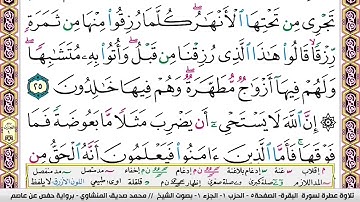 تَجْرِى مِن تَحْتِهَا ٱلْأَنْهَٰرُ ۖ كُلَّمَا رُزِقُوا۟ مِنْهَا مِن ثَمَرَةٍ
رِّزْقًا ۙ قَالُوا۟ هَٰذَا ٱلَّذِى رُزِقْنَا مِن قَبْلُ ۖ وَأُتُوا۟ بِهِۦ مُتَشَٰبِهًا ۖ
وَلَهُمْ فِيهَآ أَزْوَٰجٌ مُّطَهَّرَةٌ ۖ وَهُمْ فِيهَا خَٰلِدُونَ ٢٥
۞ إِنَّ ٱللَّهَ لَا يَسْتَحْىِۦٓ أَن يَضْرِبَ مَثَلًا مَّا بَعُوضَةً فَمَا
فَوْقَهَا ۚ فَأَمَّا ٱلَّذِينَ ءَامَنُوا۟ فَيَعْلَمُونَ أَنَّهُ ٱلْحَقُّ مِن
تلاوة عطرة لسورة البقرة- الصفحة٥ - الحزب ١ - الجزء ١ - بصوت الشيخ // محمد صديق المنشاوي - برواية حفص عن عاصم